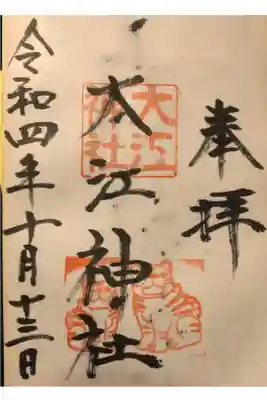 奉拝
大江神社
大江
神社
令和四年十月十三日